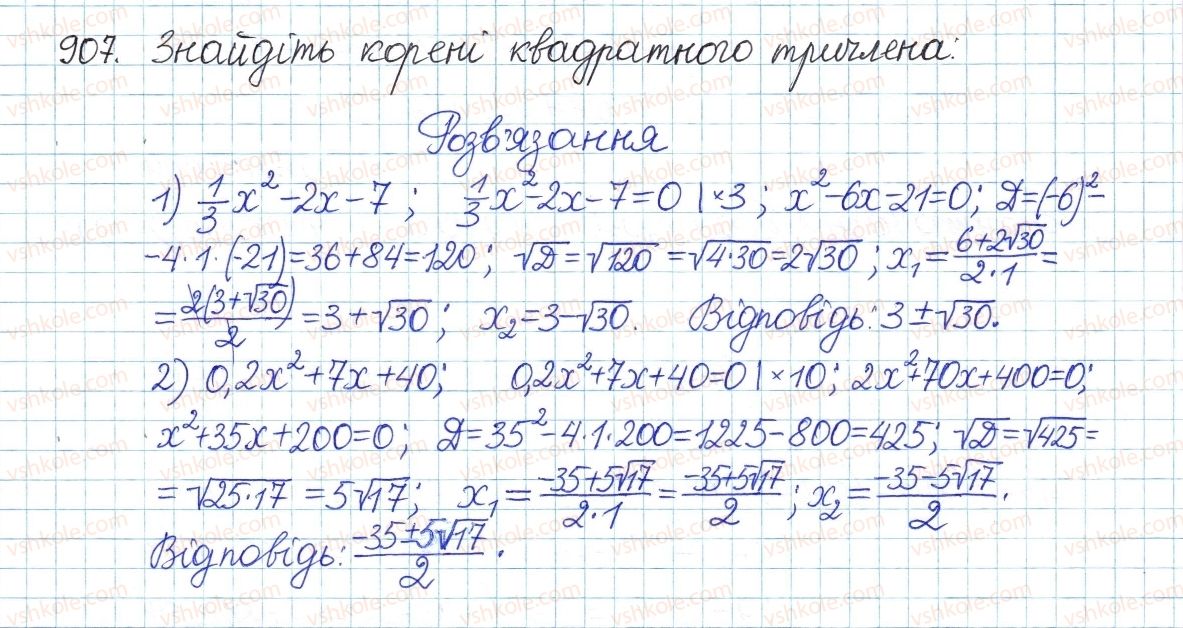 907. Знайдіть корені квадратного тричлена:
Розв'язання
1) 1/3 x² - 2x - 7 ; 1/3 x² - 2x - 7 = 0 | × 3 ; x² - 6x - 21 = 0 ; D = (-6)² -
- 4 · 1 · (-21) = 36 + 84 = 120 ; √D = √120 = √4·30 = 2√30 ; x₁ = (6+2√30)/(2·1) =
= 2(3+√30)/2 = 3 + √30 ; x₂ = 3 - √30. Відповідь: 3 ± √30.
2) 0,2x² + 7x + 40 ; 0,2x² + 7x + 40 = 0 | × 10 ; 2x² + 70x + 400 = 0 ;
x² + 35x + 200 = 0 ; D = 35² - 4 · 1 · 200 = 1225 - 800 = 425 ; √D = √425 =
= √25·17 = 5√17 ; x₁ = (-35+5√17)/(2·1) = (-35+5√17)/2 ; x₂ = (-35-5√17)/2 .
Відповідь: (-35±5√17)/2 .
vshkole.com